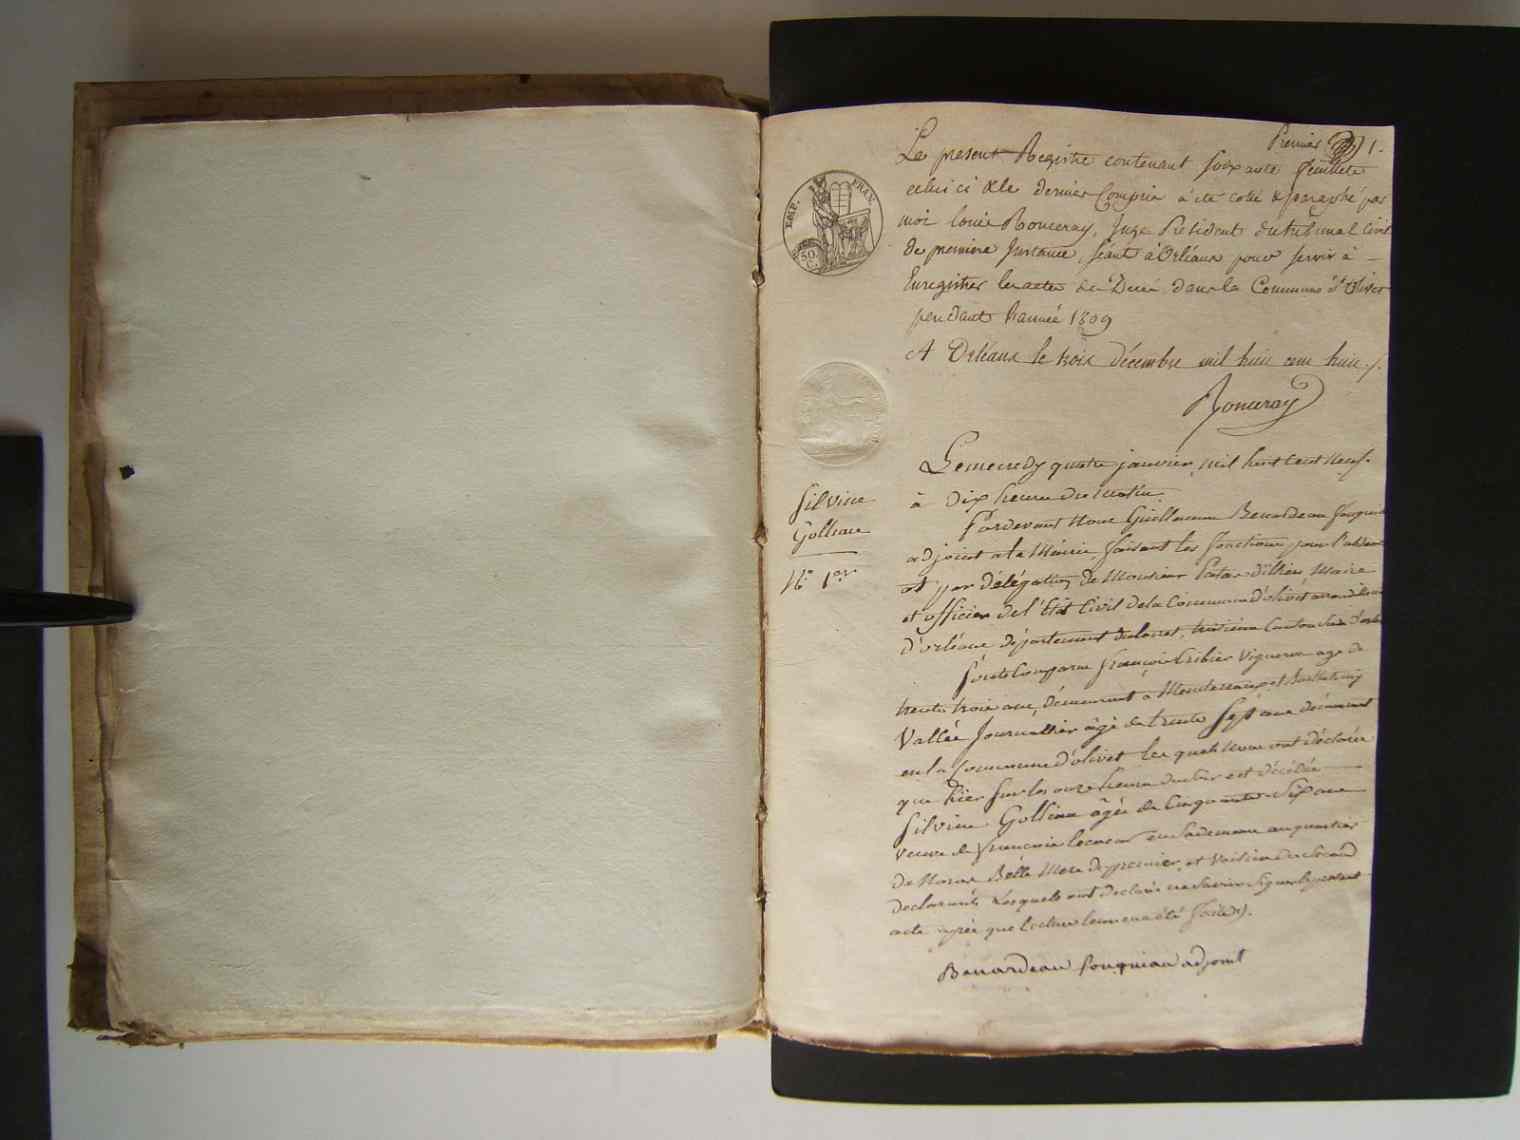 Premier 1.
Le present Registre contenant soixante feuillets
celui ci & le dernier Compris à été cotté & paraphé par
moi Louis Ronceray, Juge Président du tribunal Civil
de première Instance, séant à Orléans pour servir à
Enregistrer les actes de Décès dans la Commune d'Olivet
pendant l'année 1809
A Orléans le trois décembre mil huit cent huit ./.
Ronceray
EMP. FRAN.
50 C.
Silvine
Golleau
N.º 1.er
Le mercredy quatre janvier mil huit Cent Neuf
à Dix heures du matin
Pardevant Nous Guillaume Benardeau
adjoint à la Mairie, faisant les fonctions pour l'absence
et par délégation de Monsieur Maire
et officier de l'État Civil de la Commune d'olivet
d'orléans département du Loiret, troisieme Canton
Sont Comparus françois Vigneron age de
trente trois ans, demeurant à et Barthelemy
Vallée Journallier âgé de trente Sept ans demeurant
en la Commune d'olivet les quels Nous ont déclarés
que hier sur les onze heures du soir est décédée
Silvine Golleau âgée de Cinquante Six ans
veuve de françois en Sa demeure au quartier
de Belle Mere du premier, et Voisine du Second
declarants, Lesquels ont declaré ne Savoir Signer le present
acte après que lecture leur en a été faite.
Benardeau adjoint